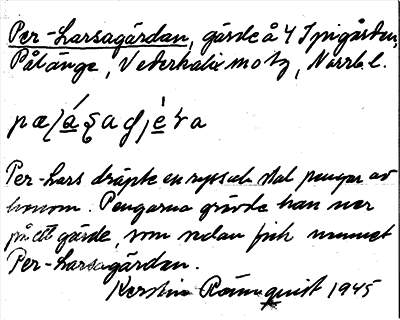 Per-Larsagärdan, gärde å 4 Spigården,
Pålänge, Nederkalix motz, Norrb l.
Per-Lars dräpte en rysseh stal pengar av
honom. Pengarna grävde han ner
på ett gärde, som sedan fick namnet
Per-Larsagärdan.
Kerstin Rönnquist 1945